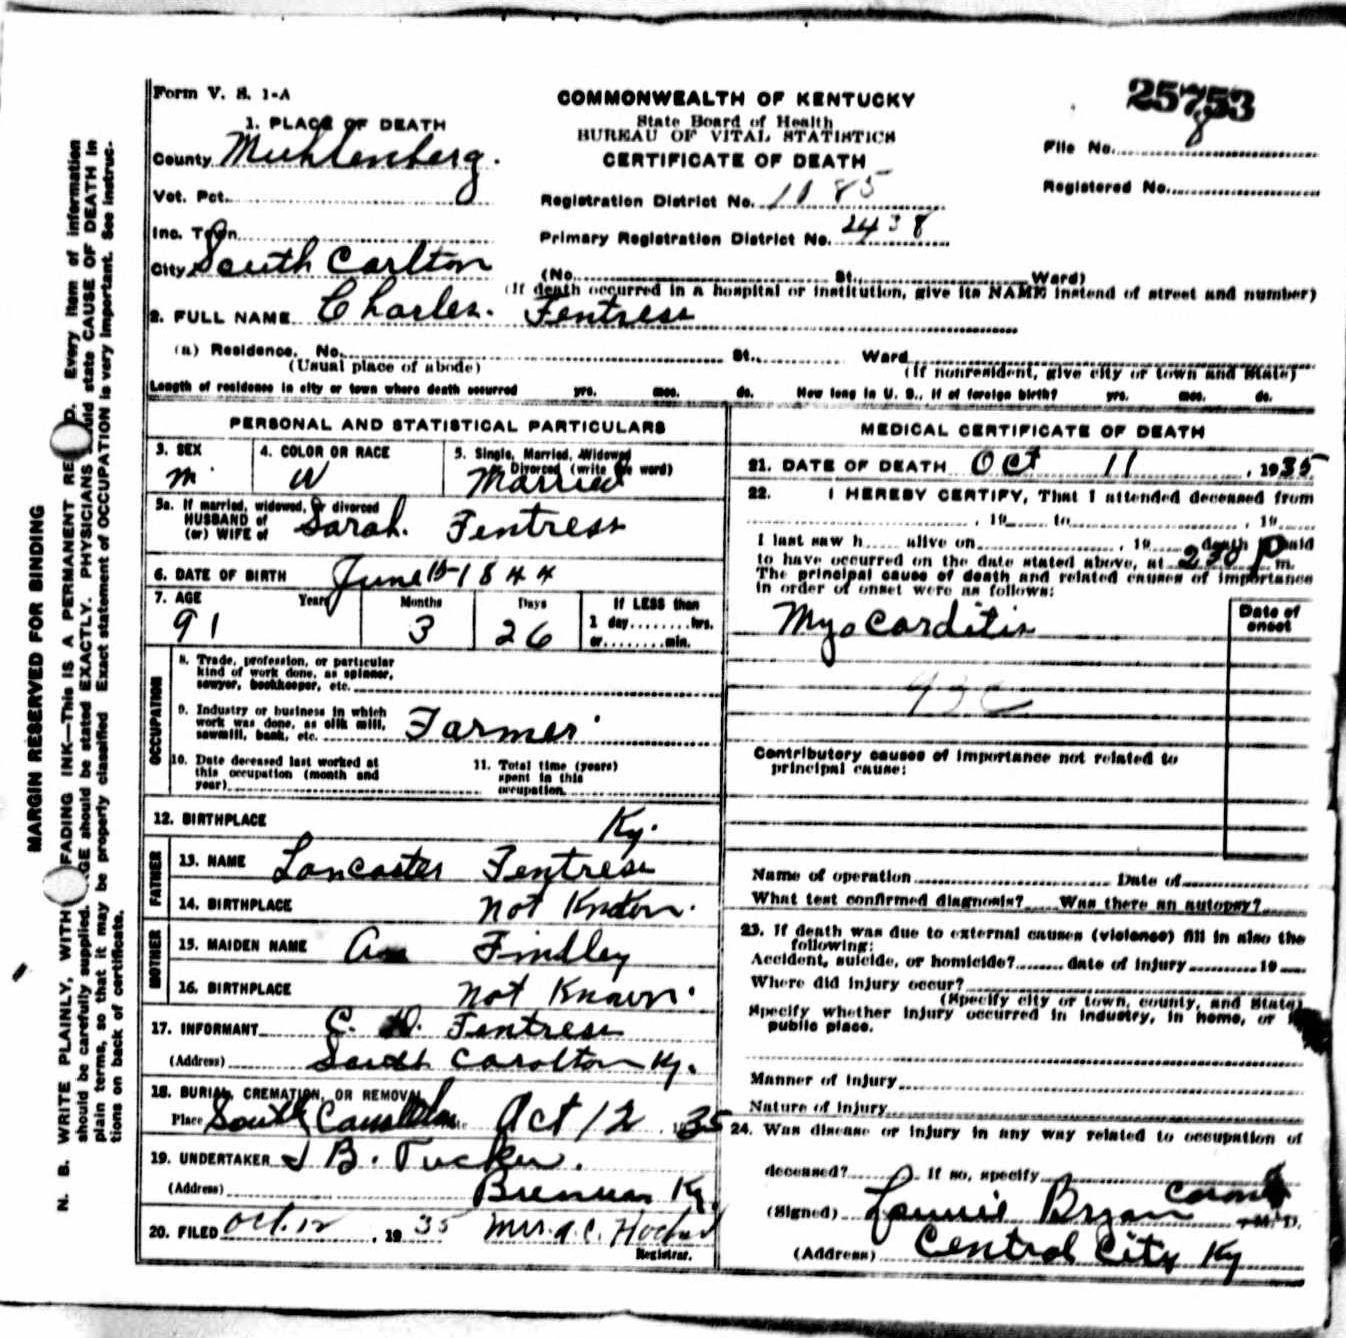 Form V. S. 1-A
COMMONWEALTH OF KENTUCKY
State Board of Health
BUREAU OF VITAL STATISTICS
CERTIFICATE OF DEATH
25753
File No.
Registered No.
1. PLACE OF DEATH
County Muhlenberg.
Vot. Pct.
Inc. Town
City South Carlton
Registration District No. 1185
Primary Registration District No. 2438
(No. St. Ward)
(If death occurred in a hospital or institution, give its NAME instead of street and number)
2. FULL NAME Charles. Fentress
(a) Residence. No. St. Ward
(Usual place of abode) (If nonresident, give city or town and State)
Length of residence in city or town where death occurred yrs. mos. ds. How long in U. S., if of foreign birth? yrs. mos. ds.
PERSONAL AND STATISTICAL PARTICULARS
3. SEX m
4. COLOR OR RACE W
5. Single, Married, Widowed
or Divorced (write the word)
Married
5a. If married, widowed, or divorced
HUSBAND of
(or) WIFE of Sarah. Fentress
6. DATE OF BIRTH June 15-1844
7. AGE Years Months Days If LESS than
1 day........hrs.
or........min.
91 3 26
OCCUPATION
8. Trade, profession, or particular
kind of work done, as spinner,
sawyer, bookkeeper, etc.
9. Industry or business in which
work was done, as silk mill,
sawmill, bank, etc. Farmer
10. Date deceased last worked at
this occupation (month and
year)
11. Total time (years)
spent in this
occupation
12. BIRTHPLACE Ky.
FATHER
13. NAME Lancaster Fentress
14. BIRTHPLACE not Known.
MOTHER
15. MAIDEN NAME Findley
16. BIRTHPLACE not Known.
17. INFORMANT C. D. Fentress
(Address) South Carolton Ky.
18. BURIAL, CREMATION, OR REMOVAL
Place South Date Oct 12 1935
19. UNDERTAKER J B. Tucker.
(Address) Bremen Ky.
20. FILED Oct. 12, 1935 Mrs. A. C.
Registrar.
MEDICAL CERTIFICATE OF DEATH
21. DATE OF DEATH Oct 11, 1935
22. I HEREBY CERTIFY, That I attended deceased from
, 19 to , 19
I last saw h alive on , 19 death is said
to have occurred on the date stated above, at 230 P m.
The principal cause of death and related causes of importance
in order of onset were as follows:
Date of
onset
Myocarditis
93c
Contributory causes of importance not related to
principal cause:
Name of operation Date of
What test confirmed diagnosis? Was there an autopsy?
23. If death was due to external causes (violence) fill in also the
following:
Accident, suicide, or homicide? date of injury 19
Where did injury occur?
(Specify city or town, county, and State)
Specify whether injury occurred in industry, in home, or in
public place.
Manner of injury
Nature of injury
24. Was disease or injury in any way related to occupation of
deceased? If so, specify
(Signed) Bryan Coroner M. D.
(Address) Central City Ky
MARGIN RESERVED FOR BINDING
N. B. WRITE PLAINLY, WITH FADING INK—This IS A PERMANENT RE D. Every item of information
should be carefully supplied. GE should be stated EXACTLY. PHYSICIANS uld state CAUSE OF DEATH in
plain terms, so that it may be properly classified. Exact statement of OCCUPATION is very important. See instruc-
tions on back of certificate.